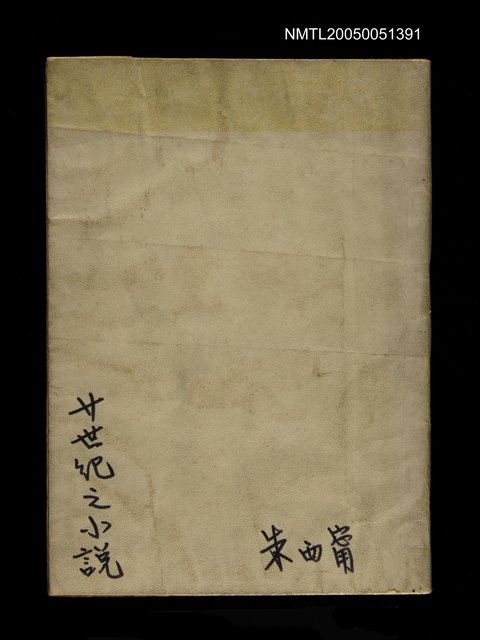 NMTL20050051391
廿世紀之小說
朱西甯